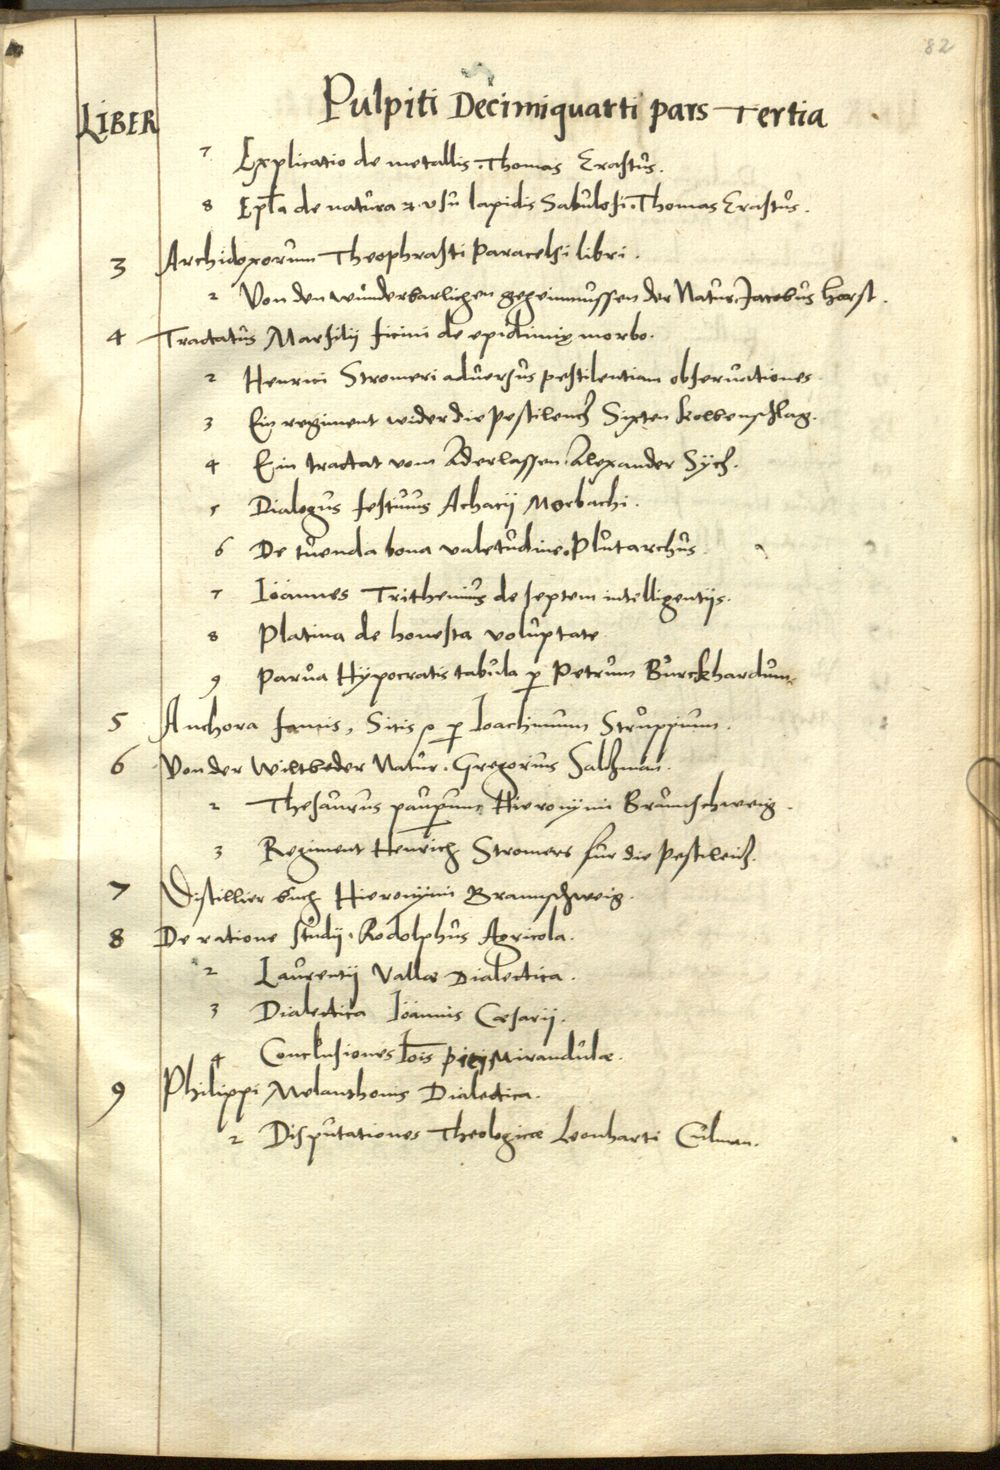 82
Pulpiti Decimiquarti pars Tertia
LIBER
7 Explicatio de metallis. Thomas Erastus.
8 Epla de natura et usu lapidis Sabulosi. Thomas Erastus.
3 Archidoxorum Theophrasti Paracelsi libri.
2 Von den wunderbarlichen geheimnussen der Natur. Jacobus Horst.
4 Tractatus Marsilij ficini de epidimię morbo.
2 Henrici Stromeri aduersus pestilentiam obseruationes
3 Ein regiment wider die Pestilentz Sixten Kolbenschlag.
4 Ein tractat vom Aderlassen. Alexander Sytz.
5 Dialogus festiuus Achatij Morbachi.
6 De tuenda bona valetudine. Plutarchus
7 Ioannes Trithemius de septem intelligentijs.
8 Platina de honesta voluptate
9 Parua Hypocratis tabula p Petrum Burckhardum
5 Anchora famis, Sitis p Ioachimum Struppium.
6 Von der Wiltbeder Natur. Gregorius Saltzman.
2 Thesaurus pauperum Hieronymi Braunschweig.
3 Regiment Henrich Stromers fur die Pestilentz.
7 Distillier buch Hieronymi Braunschweig.
8 De ratione studij. Rodolphus Agricola.
2 Laurentij Vallæ Dialectica.
3 Dialectica Ioannis Cæsarij.
4 Conclusiones Iois Pici Mirandulæ.
9 Philippi Melanthonis Dialectica.
2 Disputationes Theologicæ Leonharti Culman.